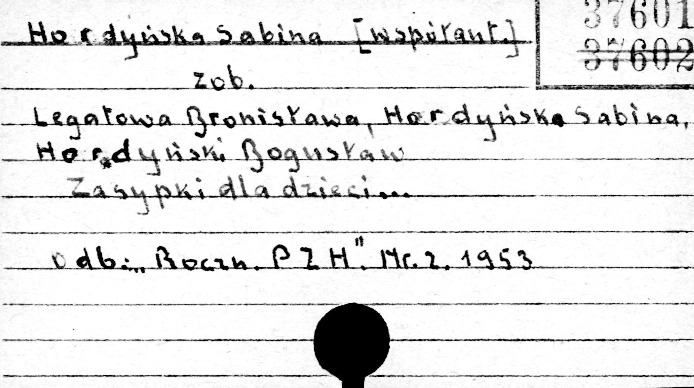 37601
37602
Hordyńska Sabina [współaut.]
zob.
Legatowa Bronisława, Hordyńska Sabina,
Hordyński Bogusław
Zasypki dla dzieci...
Odb.: „Roczn. PZH". Nr. 2. 1953